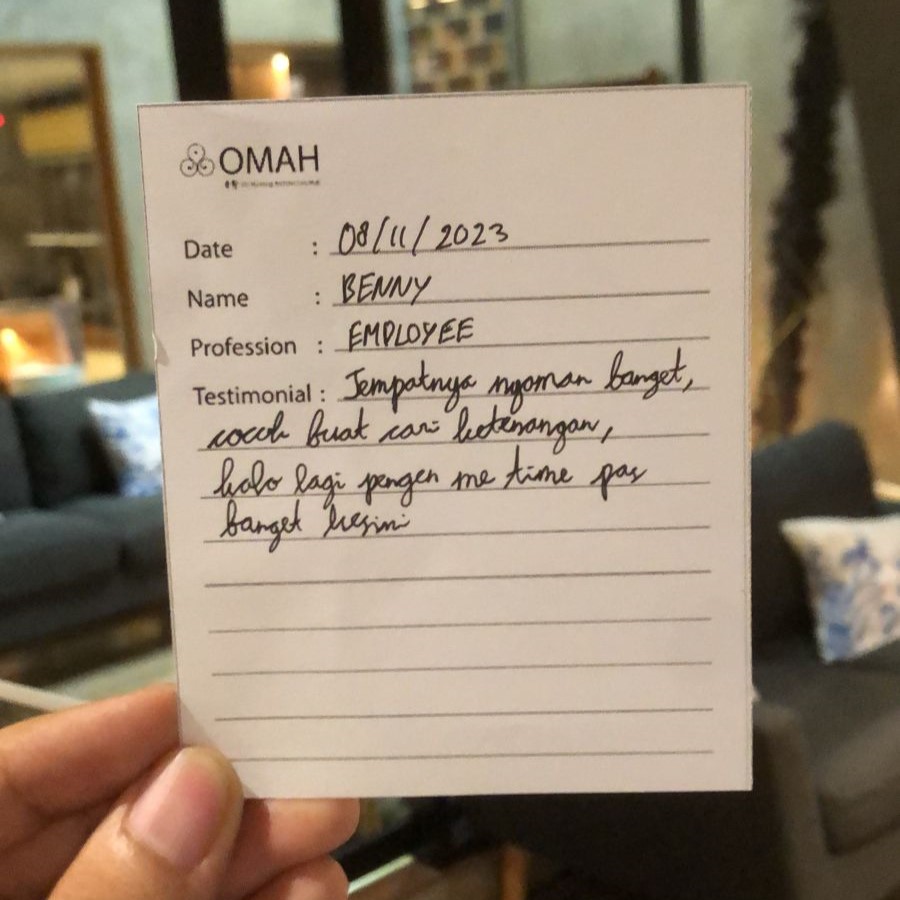 OMAH
Date : 08/11/2023
Name : BENNY
Profession : EMPLOYEE
Testimonial : Tempatnya nyoman banget,
cocok buat cari ketenangan,
kalo lagi pengen me time pas
banget kesini